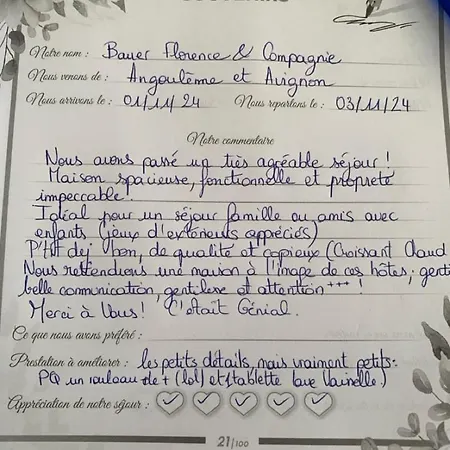 Notre nom : Bauer Florence & Compagnie
Nous venons de : Angoulême et Avignon
Nous arrivons le : 01/11/24 Nous repartons le : 03/11/24
Notre commentaire
Nous avons passé un très agréable séjour !
Maison spacieuse, fonctionnelle et propreté
impeccable.
Idéal pour un séjour famille ou amis avec
enfants (jeux d'extérieurs appréciés)
P'tit dej bon, de qualité et copieux (Croissant chaud
Nous une maison à l'image de ces hôtes ; genti
belle communication, gentillesse et attention +++ !
Merci à Vous ! C'était Génial.
Ce que nous avons préféré :
Prestation à améliorer : les petits détails, mais vraiment petits :
PQ un rouleau de + (lol) et 1 tablette lave Vaisselle.)
Appréciation de notre séjour :
21/100